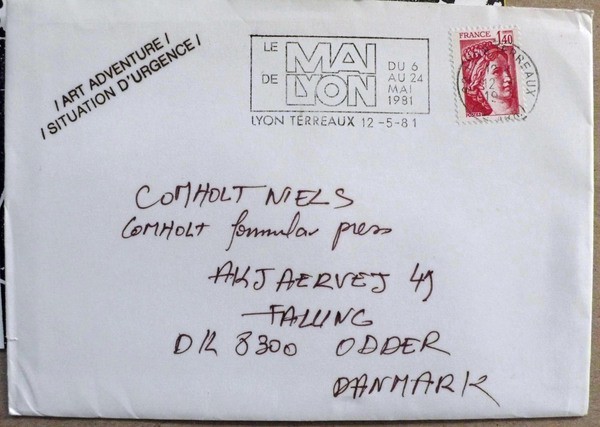 / ART ADVENTURE /
/ SITUATION D'URGENCE /
LE MAI
DE LYON
DU 6
AU 24
MAI
1981
LYON TERREAUX 12-5-81
FRANCE 1,40
TERREAUX
COMHOLT NIELS
COMHOLT formular press
AKJAERVEJ 49
FALLING
DK 8300 ODDER
DANMARK